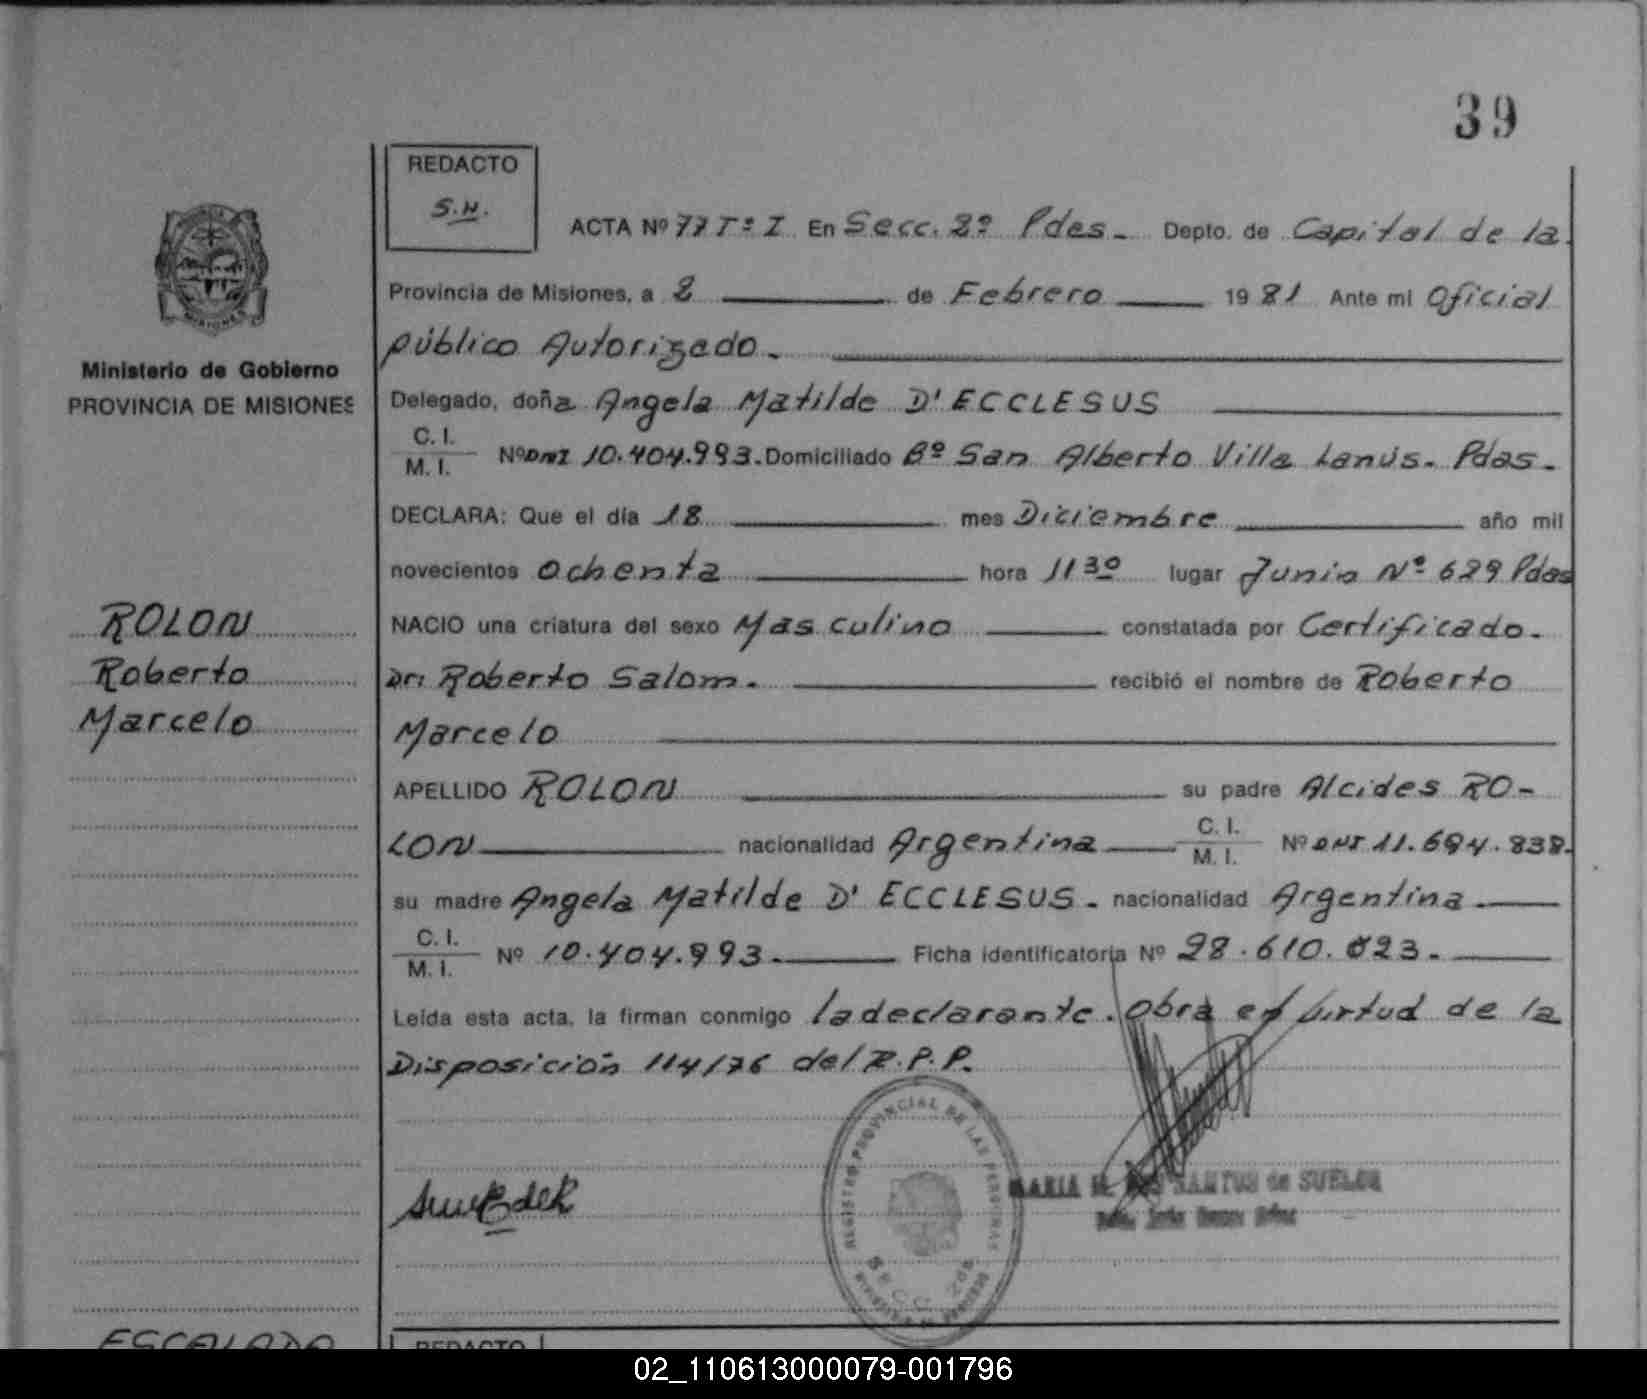 39
REDACTO
S.N.
ACTA Nº 77 Tº I En Secc. 2º Pdas. Depto. de Capital de la
Provincia de Misiones, a 2 de Febrero 1981 Ante mi Oficial
público Autorizado.
Ministerio de Gobierno
PROVINCIA DE MISIONES
Delegado, doña Angela Matilde D'ECCLESUS
C. I.
M. I. Nº DNI 10.404.993. Domiciliado Bº San Alberto Villa Lanús. Pdas.
DECLARA: Que el día 18 mes Diciembre año mil
novecientos ochenta hora 11 30 lugar Junin Nº 629 Pdas
ROLON
Roberto
Marcelo
NACIO una criatura del sexo Masculino constatada por Certificado.
Dr: Roberto Salom. recibió el nombre de Roberto
Marcelo
APELLIDO ROLON su padre Alcides RO-
LON nacionalidad Argentina C. I. M. I. Nº DNI 11.694.838.
su madre Angela Matilde D'ECCLESUS. nacionalidad Argentina.
C. I.
M. I. Nº 10.404.993. Ficha identificatoria Nº 28.610.023.
Leída esta acta, la firman conmigo la declarante. Obra en virtud de la
Disposición 114/76 del R.P.P.
REGISTRO PROVINCIAL DE LAS PERSONAS
MARIA SANTOS de SUELOS
ESCALADA
REDACTO
02_110613000079-001796